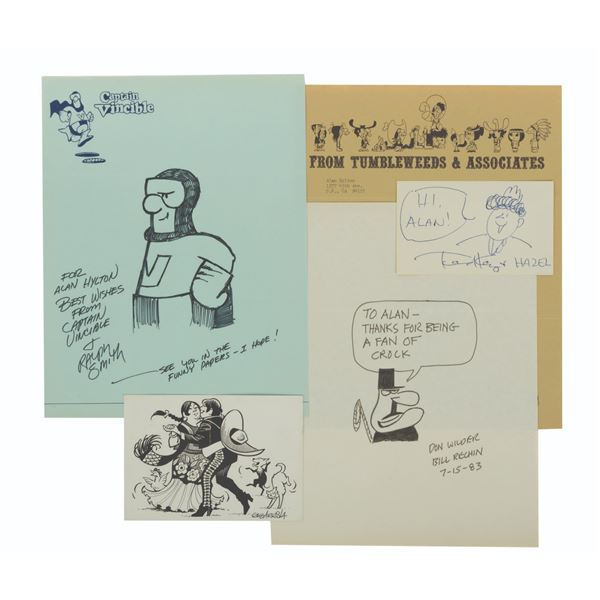 Captain
Vincible
FOR
ALAN HYLTON
BEST WISHES
FROM
CAPTAIN
VINCIBLE
+
RALPH
SMITH
SEE YOU IN THE
FUNNY PAPERS - I HOPE!
V
FROM TUMBLEWEEDS & ASSOCIATES
Alan Hylton
HI,
ALAN!
HAZEL
TO ALAN -
THANKS FOR BEING
A FAN OF
CROCK
DON WILDER
BILL RECHIN
7-15-83